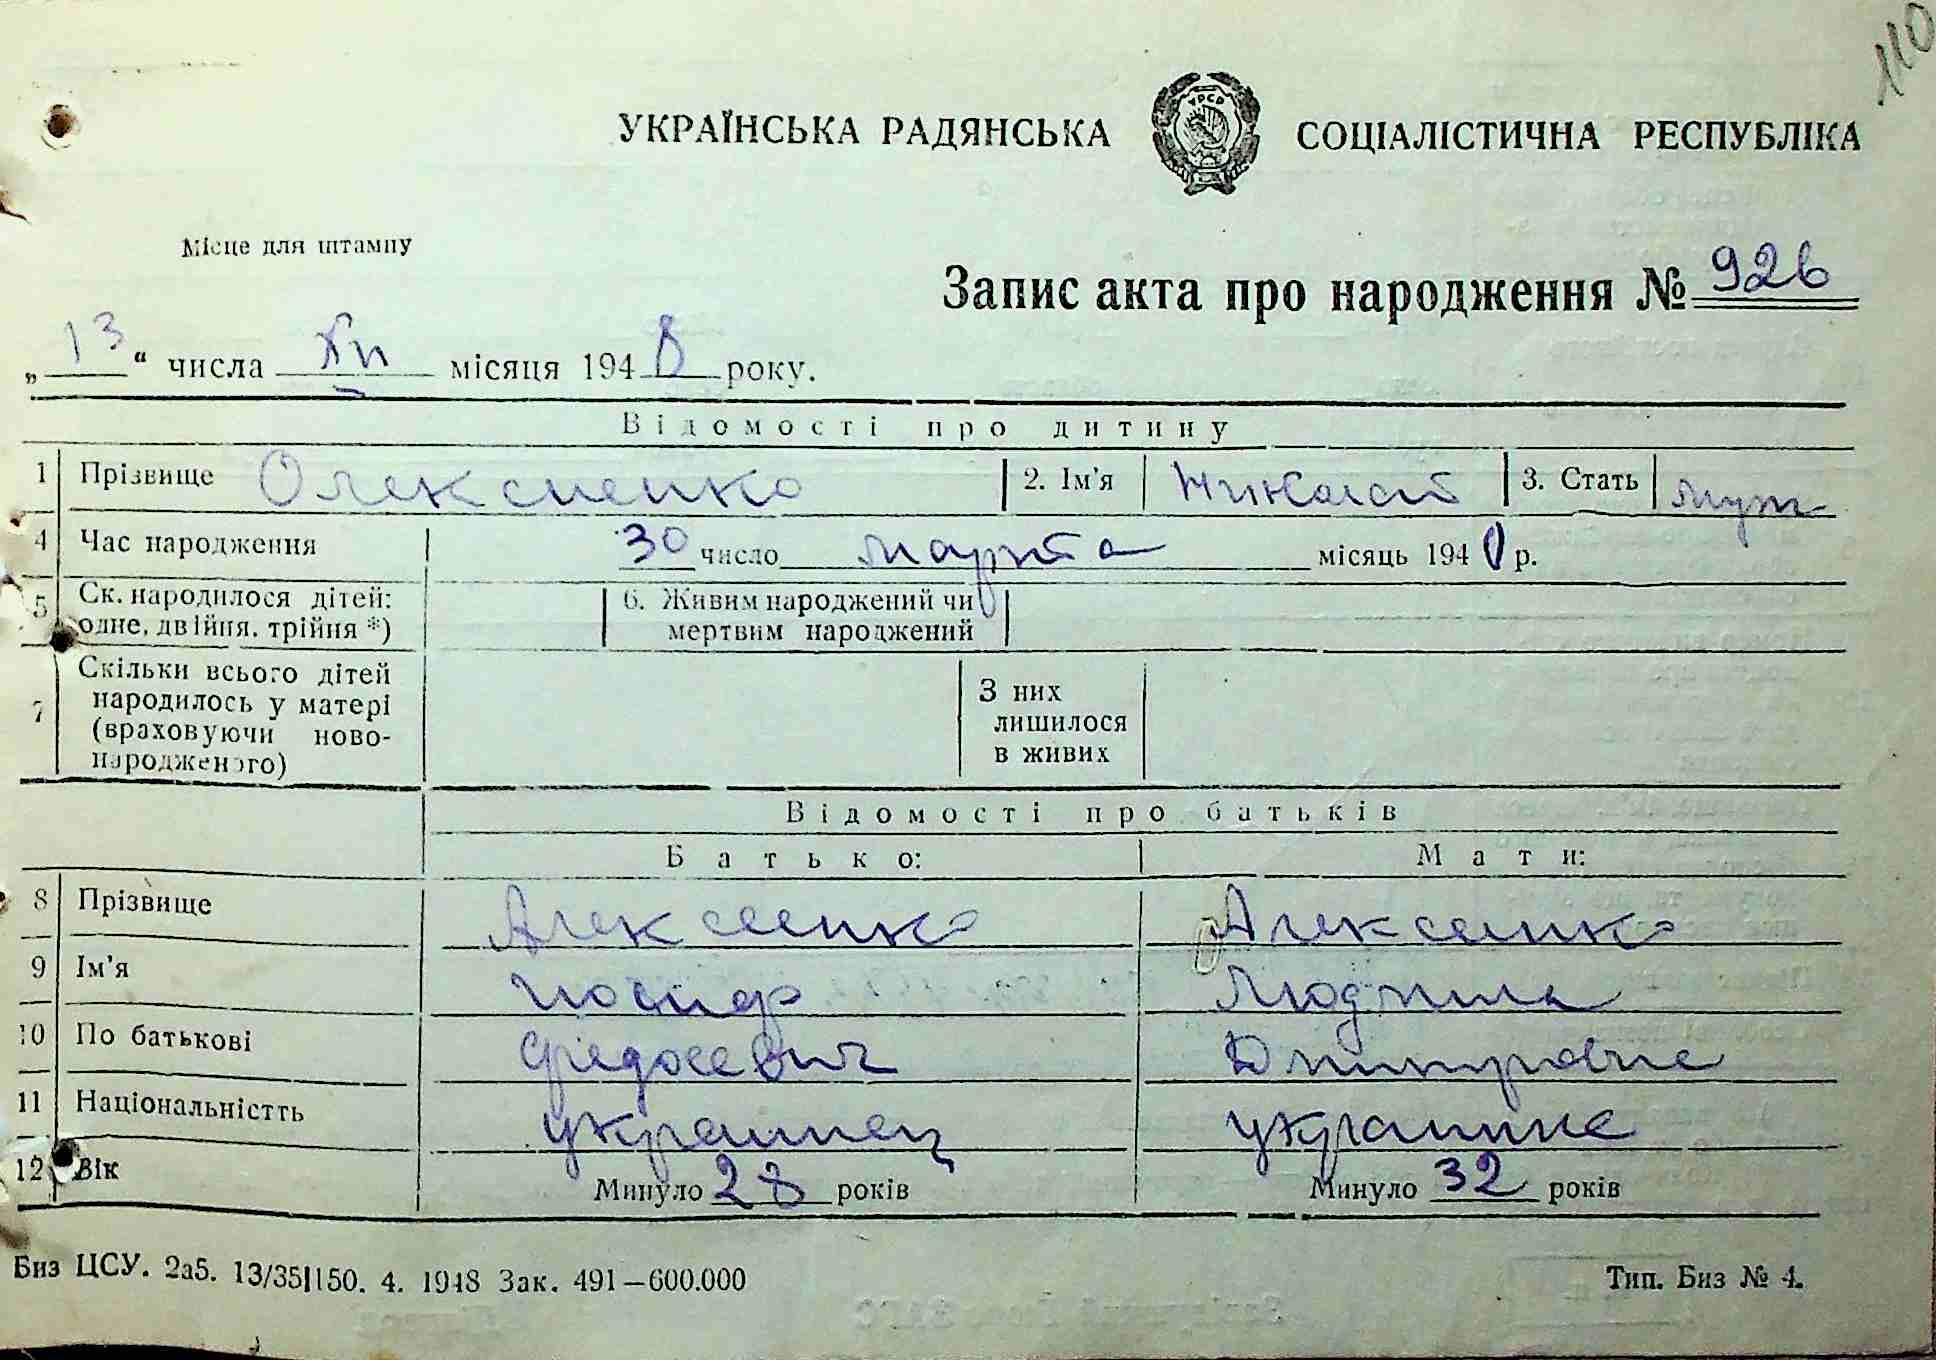 110
УКРАЇНСЬКА РАДЯНСЬКА СОЦІАЛІСТИЧНА РЕСПУБЛІКА
УРСР
Місце для штампу
Запис акта про народження № 926
„13“ числа XII місяця 1948 року.
Відомості про дитину
1 Прізвище Олексиенко 2. Ім'я Николай 3. Стать муж
4 Час народження 30 число марта місяць 1940 р.
5 Ск. народилося дітей: одне, двійня, трійня *) 6. Живим народжений чи мертвим народжений
7 Скільки всього дітей народилось у матері (враховуючи ново-народженого) З них лишилося в живих
Відомості про батьків
Батько: Мати:
8 Прізвище Алексеенко Алексеенко
9 Ім'я Иосиф Людмила
10 По батькові Федосевич Дмитровна
11 Національністть украинец украинка
12 Вік Минуло 28 років Минуло 32 років
Биз ЦСУ. 2а5. 13/35|150. 4. 1948 Зак. 491—600.000 Тип. Биз № 4.